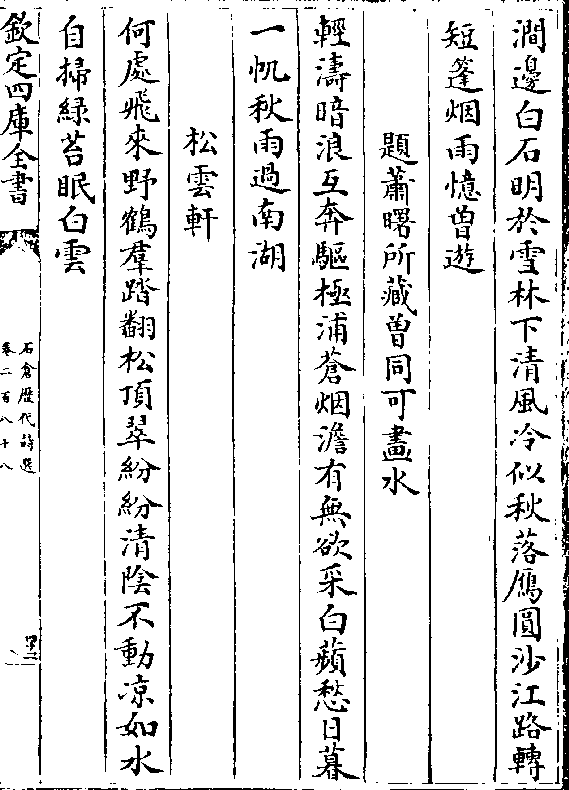 澗邊白石明於雪林下清風冷似秋落鴈圓沙江路轉
短篷烟雨憶曽遊
題蕭曙所藏曽同可畫水
輕濤暗浪互奔驅極浦蒼烟澹有無欲采白蘋愁日暮
一帆秋雨過南湖
松雲軒
何處飛來野鶴羣踏翻松頂翠紛紛清陰不動凉如水
自掃緑苔眠白雲
欽定四庫全書
石倉歴代詩選
卷二百八十八